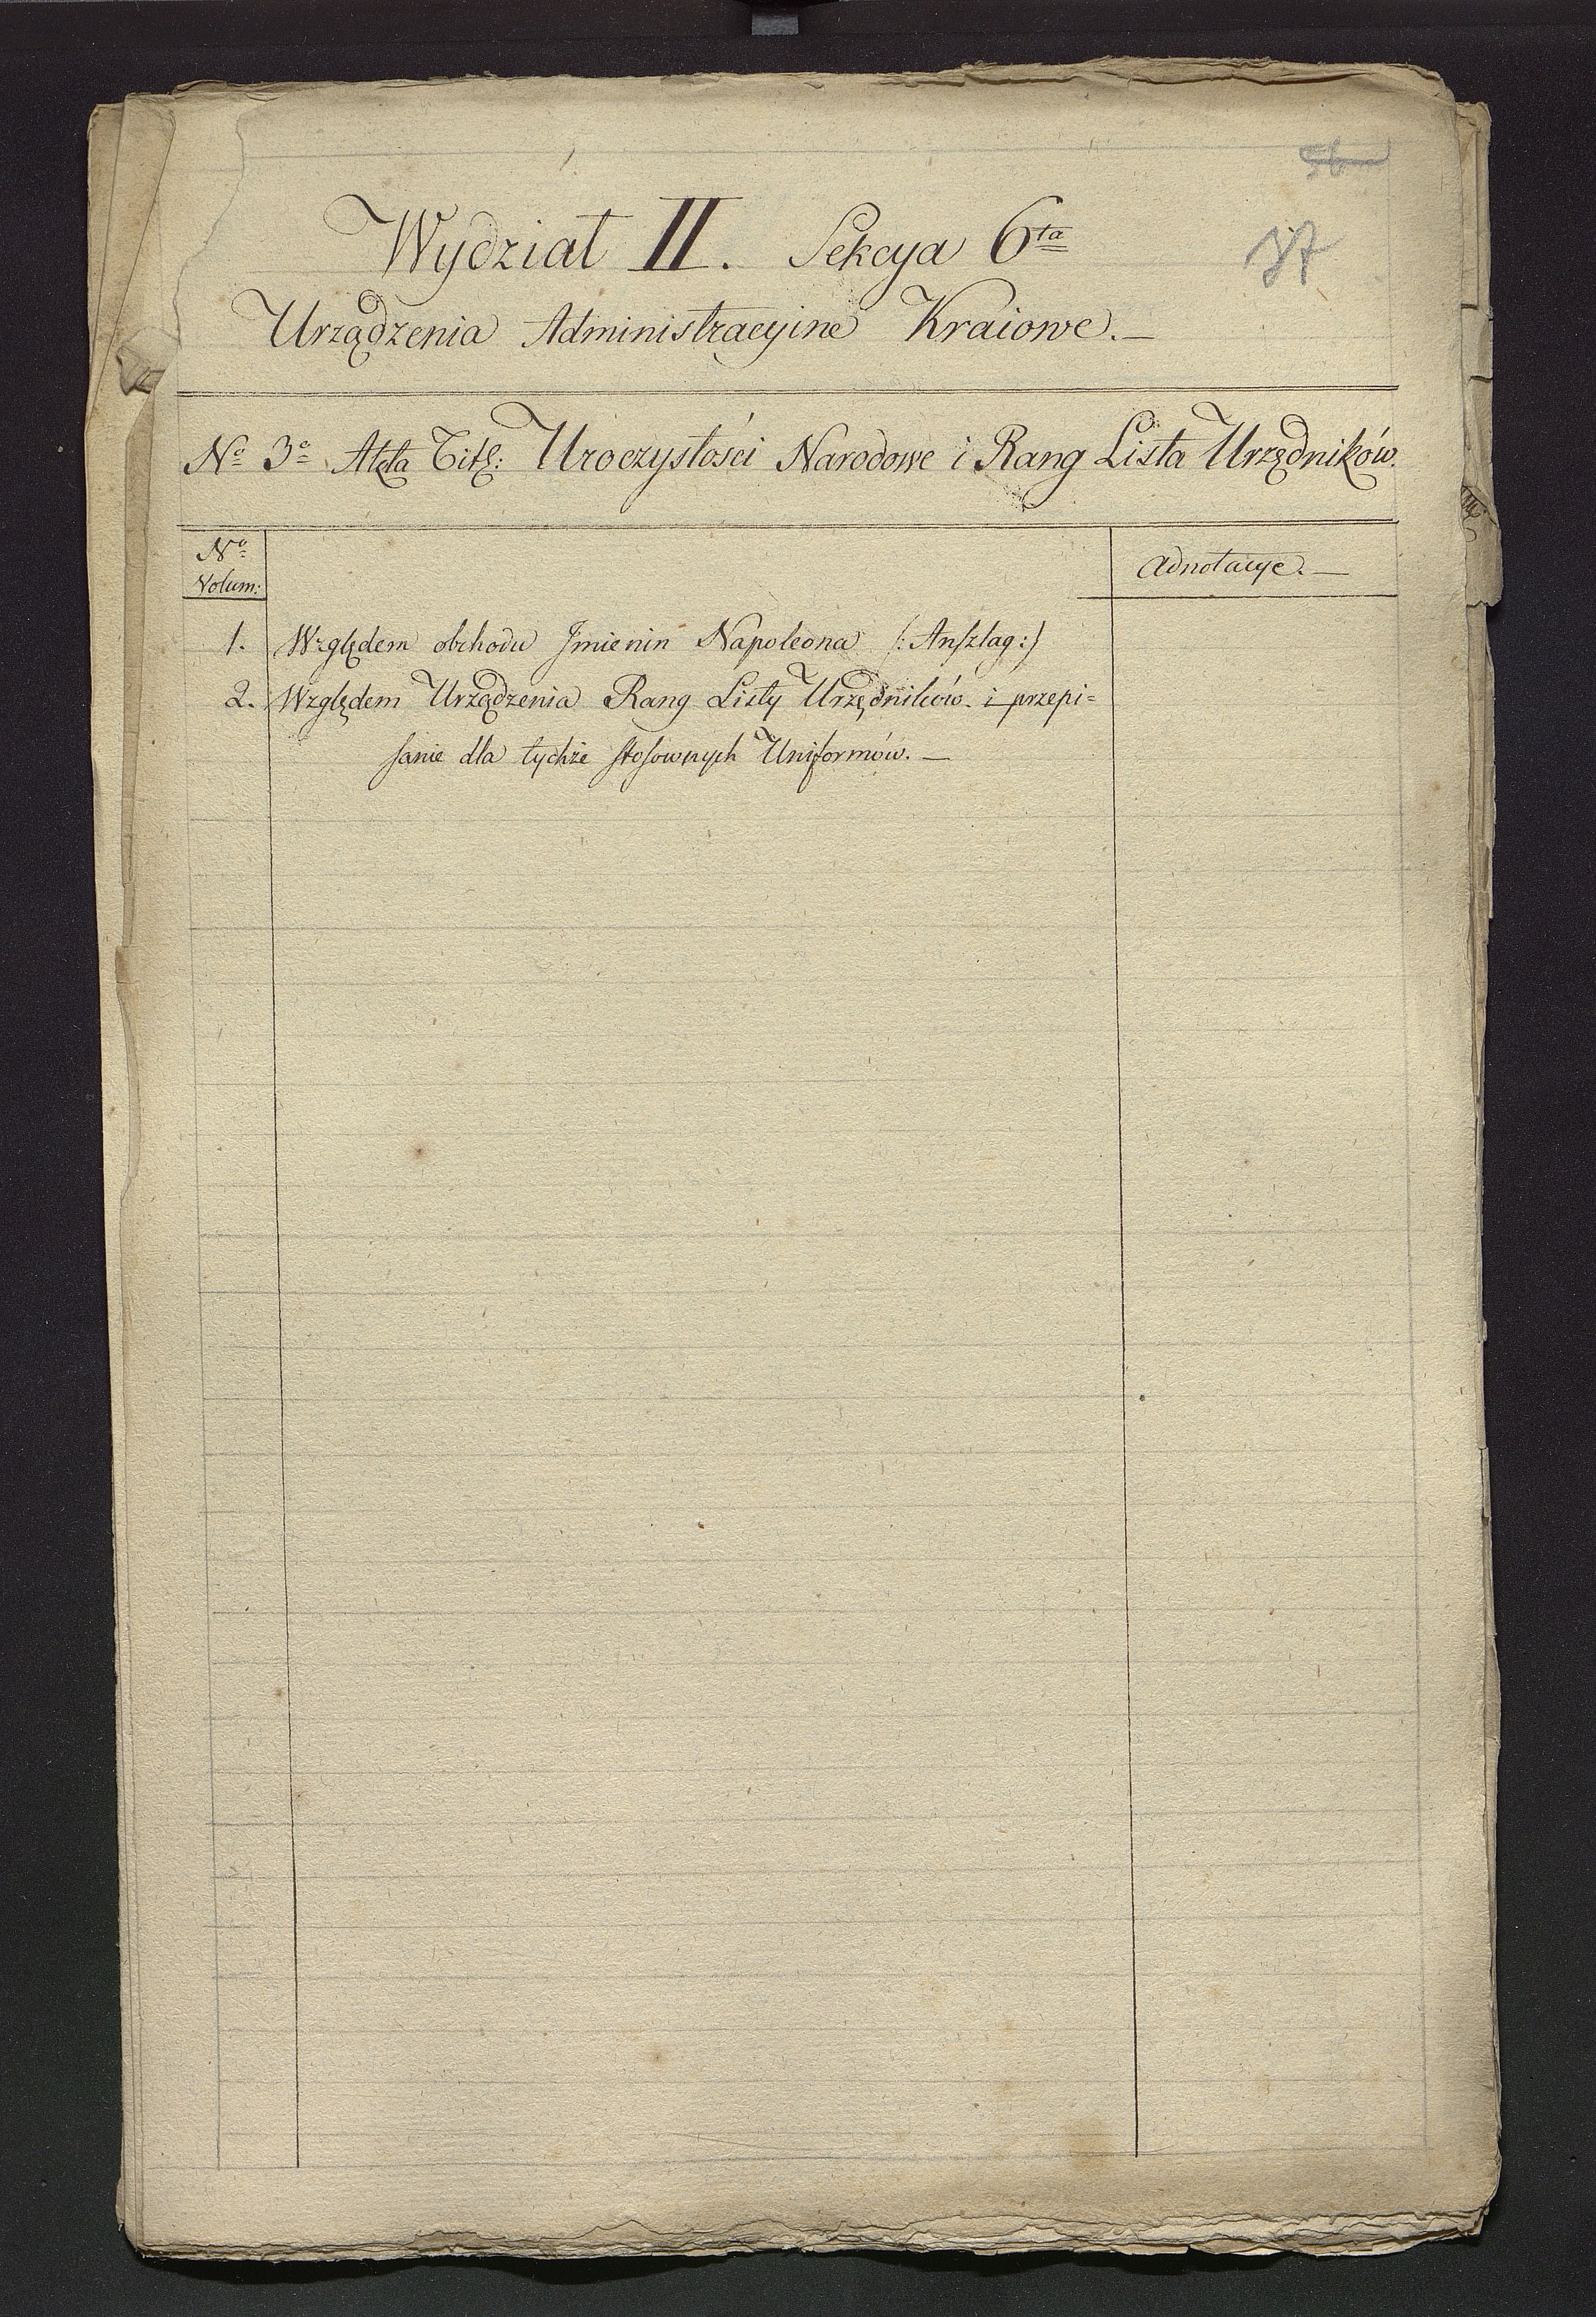 56
37
Wydział II. Sekcya 6ta
Urządzenia Administracyine Kraiowe.—
No 3o Akta Titl: Uroczystości Narodowe i Rang Lista Urzędników.
No
Volum:
Adnotacye.—
1. Względem obchodu Jmienin Napoleona (: Anszlag :)
2. Względem Urządzenia Rang Listy Urzędników i przepi=
sanie dla tychże stosownych Uniformów.—